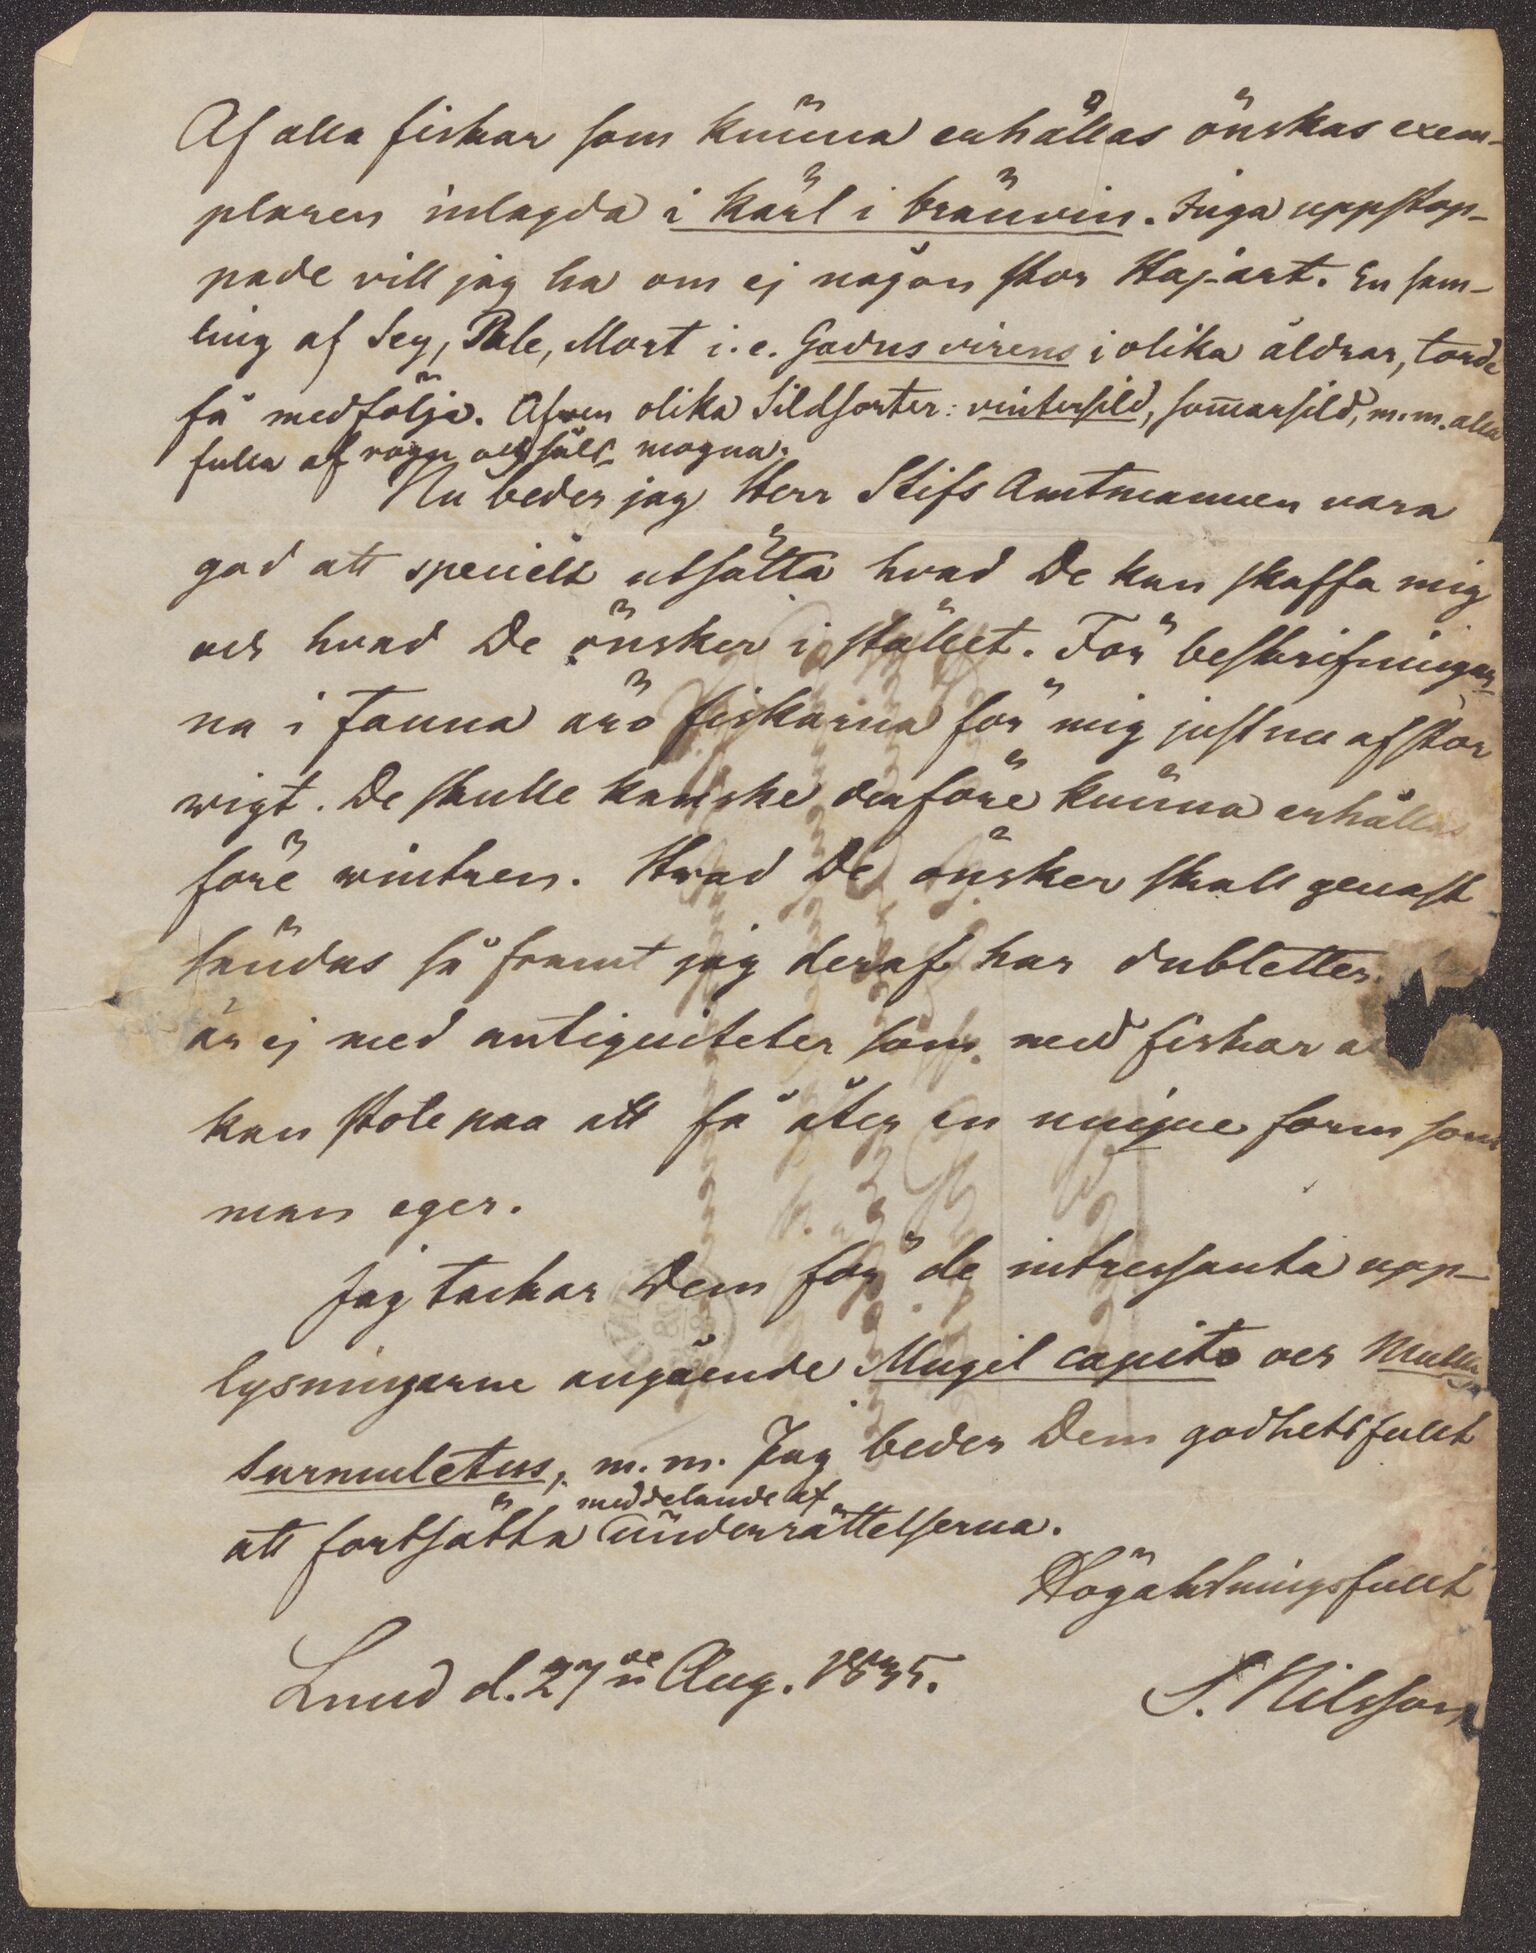 Af alla fiskar som kunna erhållas önskas exem-
plaren inlagda i kärl i bränvin. Inga uppstop-
pade vill jag ha om ej någon stor Haj-art. En sam-
ling af Sey, Pale, Mort i.e. Gadus virens i olika åldrar, torde
få medfölja. Afven olika Sildsorter: vintersild, som̄arsild, m.m. alla
fulla af rogn och mogna.
Nu beder jag Herr Stifs Amtmannen vara
god att specielt utsätta hvad De kan skaffa mig
och hvad De önsker i stället. För beskrifningar-
na i Fauna äro fiskarna för mig just nu af stor
wigt. De skulle kanske derföre kunna erhållas
före wintren. Hvad De önsker skall genast
sändas så framt jag deraf har dubletter.
är ej med antiquiteter som med fiskar a
kan stole paa att få åter en unique form som
man eger.
Jag tackar Dem för de intressanta upp-
lysningarne angående Mugil capito och Mullus
surmuletus, m.m. Jag beder Dem godhetsfullt
meddelande af
att fortsätta underrättelserna.
Högaktningsfullt
Lund d. 27 Aug. 1835.
S. Nilsson